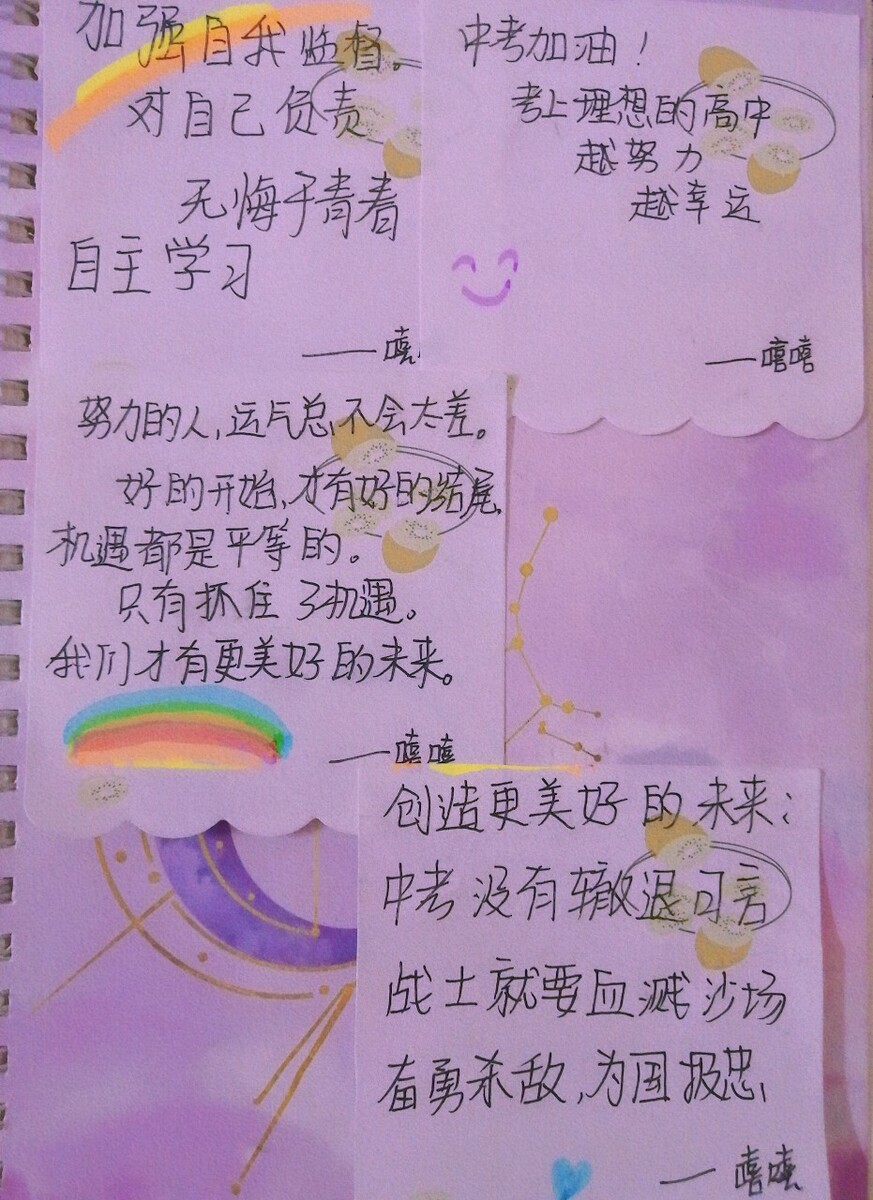 加强自我监督。
对自己负责
无悔于青春
自主学习
——嘻
中考加油！
考上理想的高中
越努力
越幸运
——嘻嘻
努力的人，运气总不会太差。
好的开始，才有好的结尾，
机遇都是平等的。
只有抓住了机遇。
我们才有更美好的未来。
——嘻嘻
创造更美好的未来：
中考没有辙退可言
战士就要血溅沙场
奋勇杀敌，为国报忠，
——嘻嘻